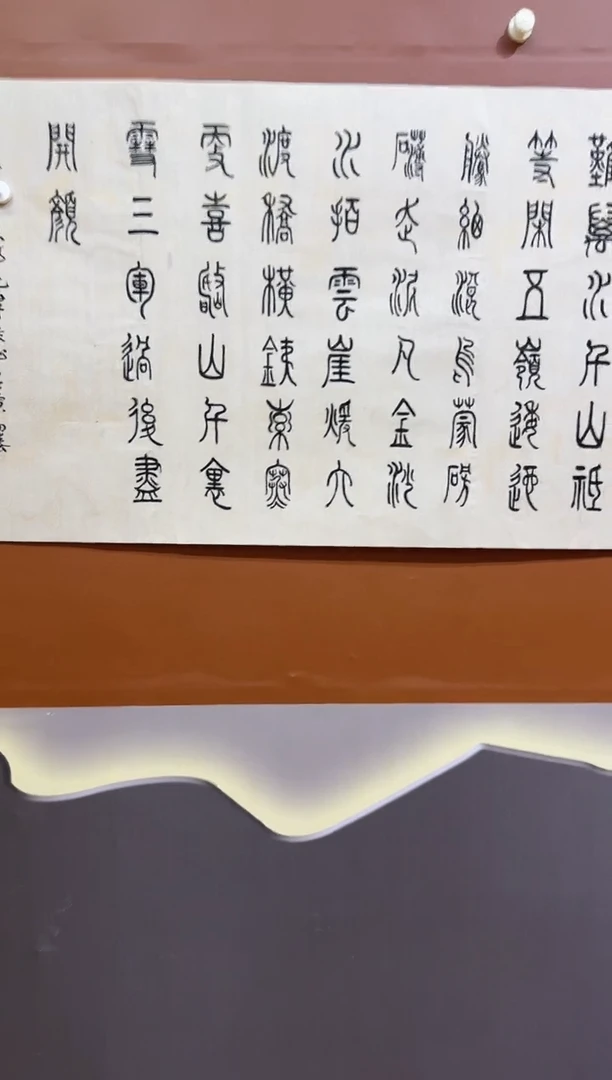 難萬水千山祗
等閑五嶺逶迤
騰細浪烏蒙磅
礴走泥丸金沙
水拍雲崖暖大
渡橋橫鐵索寒
更喜岷山千裏
雪三軍過後盡
開顏